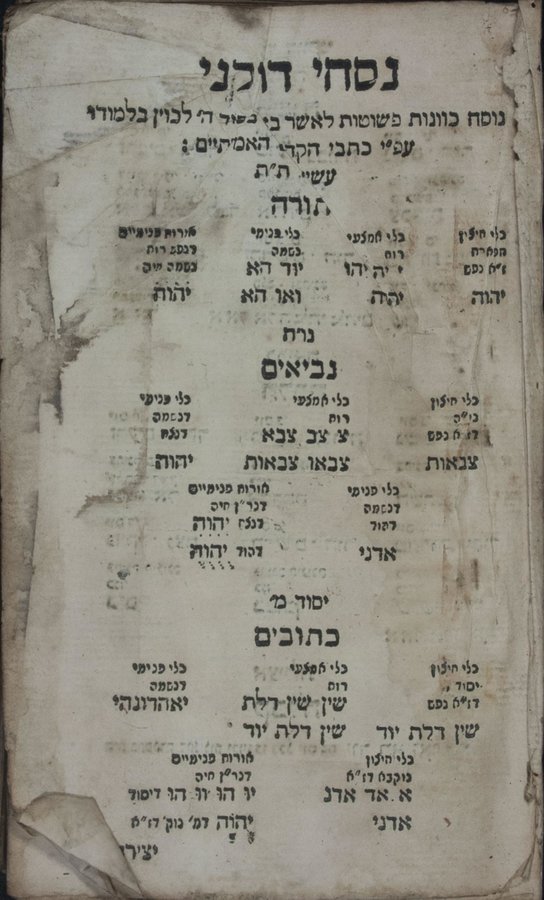 נסחי דוקני
נוסח כוונות פשוטות לאשר בי בשוד ה׳ לכוין בלמודי
עפ״י כתבי הקדי האמתיים :
עשיי ת״ת
תורה
כלי חיצון כלי אמצעי כלי פנימי אורות פנימיים
תפארת רוח נשמה דנפש רוח
ז״א נפש י יה יהו יוד הא נשמה חיה
יהוה יהוה ואו הא יהוה
נו״ה
נביאים
כלי חיצון כלי אמצעי כלי פנימי
נו״ה רוח דנשמה
דז״א נפש צ צב צבא דנצח
צבאות צבאו צבאות יהוה
כלי פנימי אורות פנימיים
דנשמה דנר״ן חיה
דהוד דנצח יהוה
אדני דהוד יהוה
יסוד מ׳
כתובים
כלי חיצון כלי אמצעי כלי פנימי
יסוד רוח דנשמה
דז״א נפש שין שין דלת יאהדונהי
שין דלת יוד שין דלת יוד
כלי חיצון אורות פנימיים
נוקבא דז״א דנר״ן חיה
א אד אדנ יו הו וו הו דיסוד
אדני יהוה דמ׳ נוק׳ דז״א
יצירה